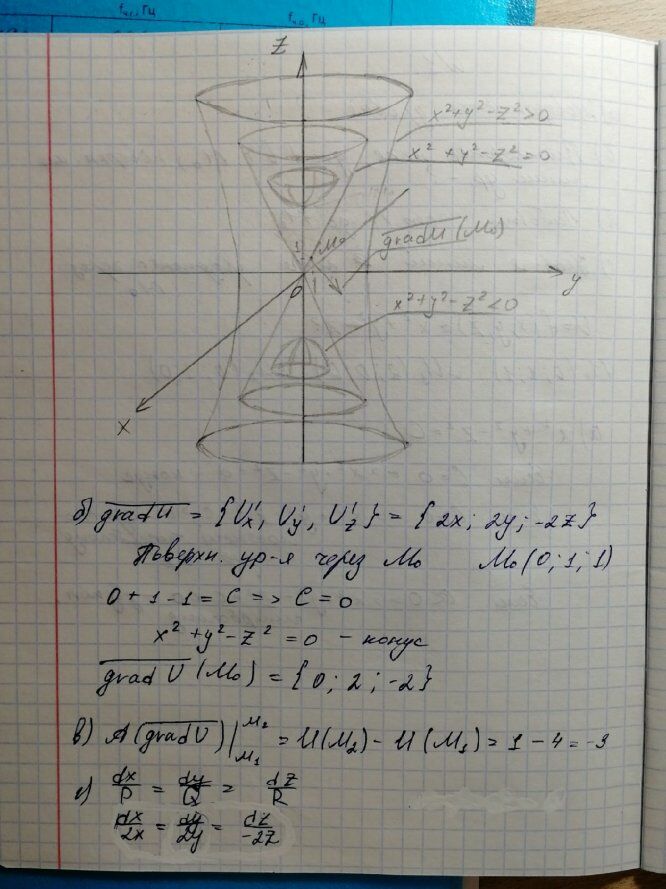 fч.г., Гц
fч.о., Гц
Z
x²+y²-z²>0
x²+y²-z²=0
1
M₀
gradU(M₀)
0
1
y
x²+y²-z²<0
x
б) gradU = {U'x, U'y, U'z} = {2x; 2y; -2z}
Поверхн. ур-я через M₀ M₀(0; 1; 1)
0+1-1 = C => C = 0
x²+y²-z² = 0 - конус
grad U (M₀) = {0; 2; -2}
в) A(gradU)|M₁M₂ = U(M₂) - U(M₁) = 1 - 4 = -3
г) dx/P = dy/Q = dz/R
dx/2x = dy/2y = dz/-2z